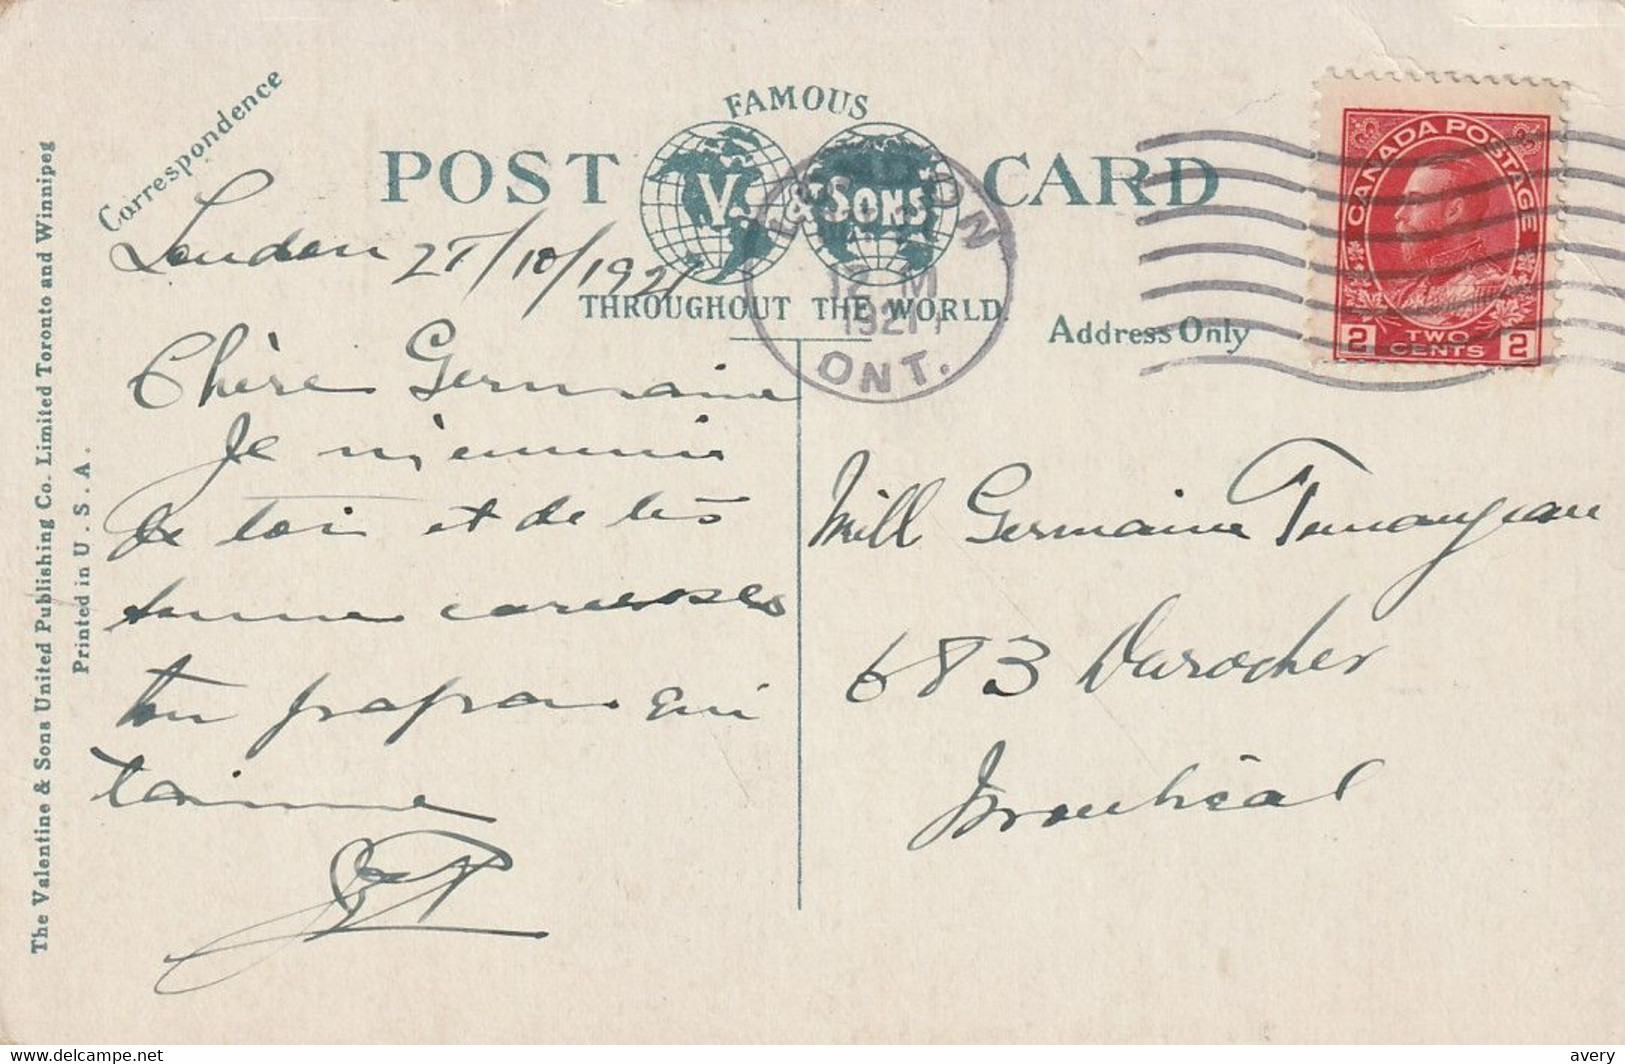 Correspondence
FAMOUS
POST CARD
V. & SONS
THROUGHOUT THE WORLD.
Address Only
The Valentine & Sons United Publishing Co. Limited Toronto and Winnipeg
Printed in U.S.A.
LONDON
12 M
1921
ONT.
CANADA POSTAGE
2 TWO CENTS 2
London 27/10/1921
Chère Germaine
Je m'ennuie
de toi et de tes
bonne caresses
ton papa qui
t'aime
Mill Germaine
683 Durocher
Montréal
delcampe.net
avery